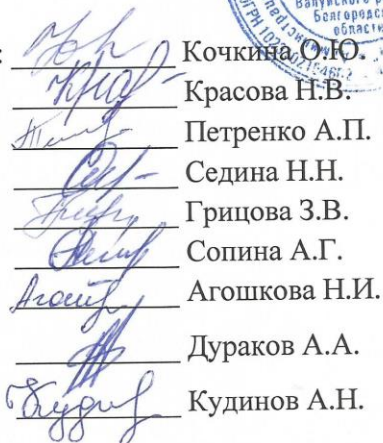 Валуйского
Белгородской
области
Кочкина О.Ю.
Красова Н.В.
Петренко А.П.
Седина Н.Н.
Грицова З.В.
Сопина А.Г.
Агошкова Н.И.
Дураков А.А.
Кудинов А.Н.